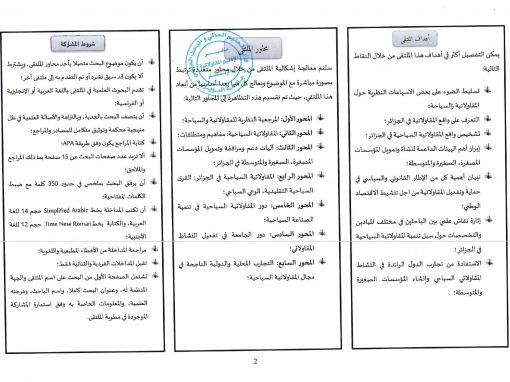 أهداف الملتقى
يمكن التفصيل أكثر في أهداف هذا الملتقى من خلال النقاط
التالية:
تسليط الضوء على بعض الاسهامات النظرية حول
المقاولاتية السياحية؛
التعرف على واقع المقاولاتية في الجزائر؛
تشخيص واقع المقاولاتية السياحية في الجزائر؛
إبراز أهم الهيئات الداعمة لنشأة وتمويل المؤسسات
المصغرة، الصغيرة والمتوسطة؛
تبيان أهمية كل من الإطار القانوني والسياسي في
حماية وتفعيل المقاولاتية من اجل تنشيط الاقتصاد
الوطني؛
إثارة نقاش علمي بين الباحثين في مختلف الميادين
والتخصصات حول سبل تنمية المقاولاتية السياحية
في الجزائر؛
الاستفادة من تجارب الدول الرائدة في النشاط
المقاولاتي السياحي وإنشاء المؤسسات الصغيرة
والمتوسطة؛
محاور الملتقى
ستتم معالجة إشكالية الملتقى من خلال محاور متعددة ترتبط
بصورة مباشرة مع الموضوع وتعالج كل من أبعاد
هذا الملتقى، حيث تم تقسيم هذه التظاهرة إلى المحاور التالية:
المحور الأول: المرجعية النظرية للمقاولاتية والسياحة؛
المحور الثاني: المقاولاتية السياحية؛ مفاهيم ومنطلقات؛
المحور الثالث: آليات دعم ومرافقة وتمويل المؤسسات
المصغرة، الصغيرة والمتوسطة في الجزائر؛
المحور الرابع: المقاولاتية السياحية في الجزائر: القرى
السياحية التقليدية، الوعي السياحي؛
المحور الخامس: دور المقاولاتية السياحية في تنمية
الصناعة السياحية؛
المحور السادس: دور الجامعة في تفعيل النشاط
المقاولاتي؛
المحور السابع: التجارب المحلية والدولية الناجحة في
مجال المقاولاتية السياحية؛
شروط المشاركة
أن يكون موضوع البحث متصلا بأحد محاور الملتقى، ويشترط
ألا يكون قد سبق نشره أو تم التقدم به إلى ملتقى آخر؛
تقدم البحوث العلمية في الملتقى باللغة العربية أو الإنجليزية
أو الفرنسية؛
أن يتصف البحث بالجدية، وبالنزاهة والأصالة العلمية في ظل
منهجية محكمة وتوثيق متكامل للمصادر والمراجع؛
كتابة المراجع يكون وفق طريقة APA؛
ألا تزيد عدد صفحات البحث عن 15 صفحة بما ذلك المراجع
والملاحق؛
أن يرفق البحث بملخص في حدود 350 كلمة مع ضبط
الكلمات المفتاحية؛
أن تكتب المداخلة بخط Simplified Arabic حجم 14 للغة
العربية، والكتابة بخط Time New Roman حجم 12 للغة
الأجنبية؛
مراجعة المداخلة من الأخطاء المطبعية واللغوية؛
تقبل المداخلات الفردية والثنائية فقط؛
تشتمل الصفحة الأولى من البحث على اسم الملتقى والجهة
المنظمة له، وعنوان البحث كاملا، واسم الباحث، ودرجته
العلمية، والمعلومات الخاصة به وفق استمارة المشاركة
الموجودة في مطوية الملتقى.
2